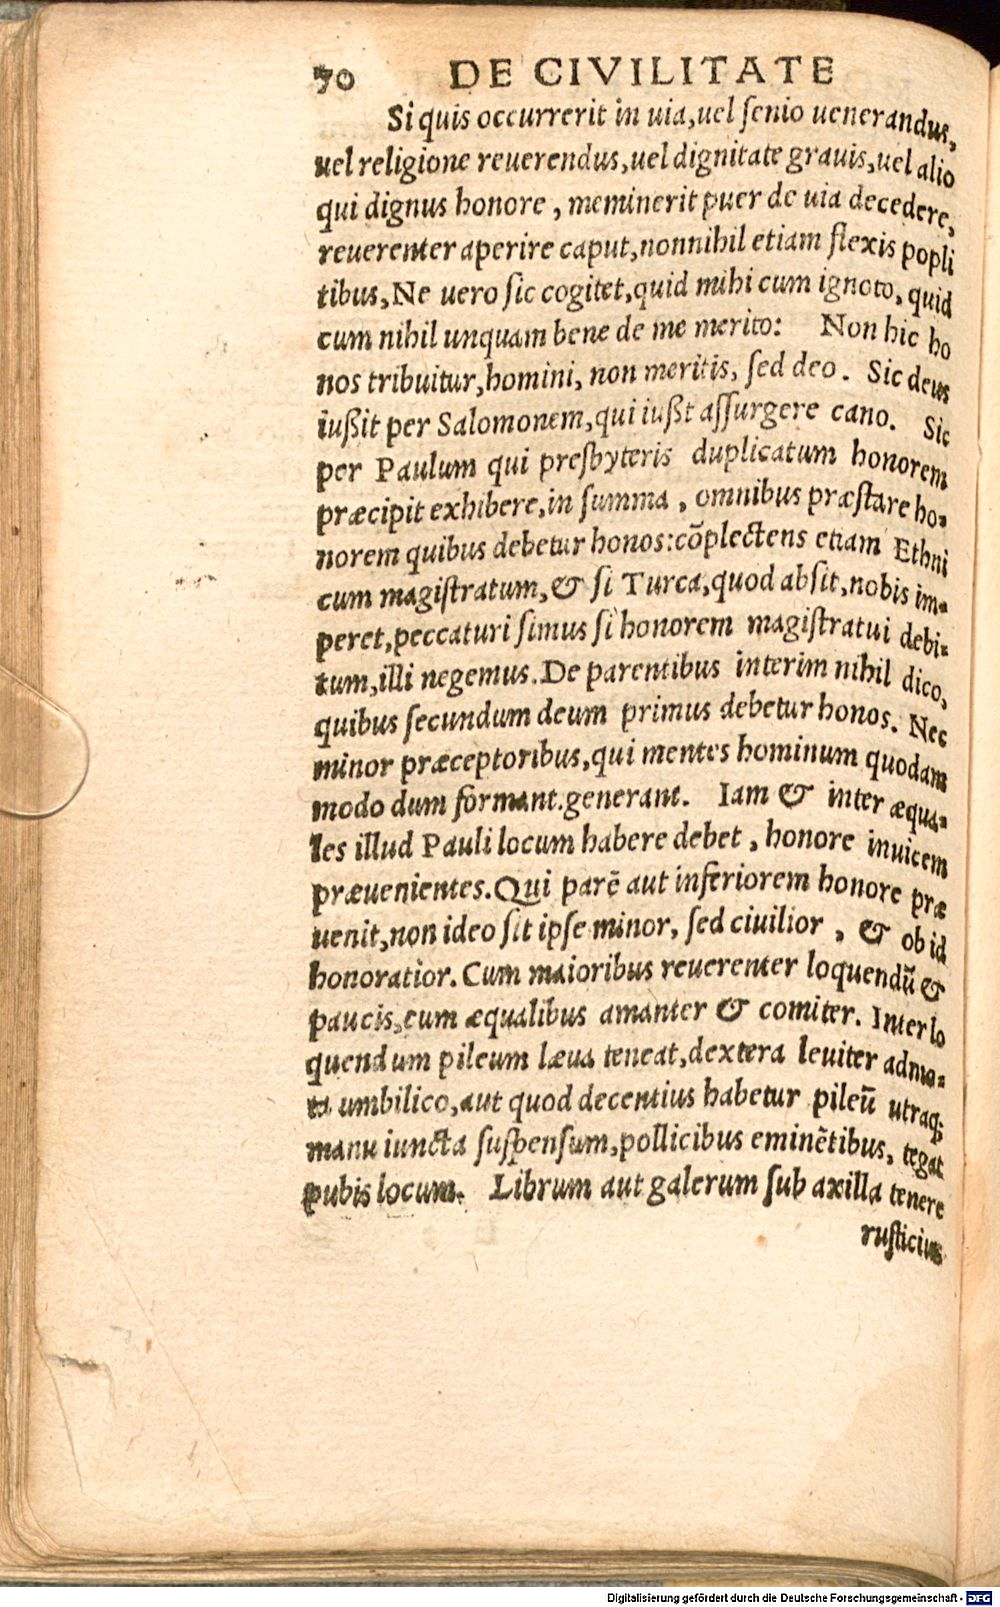 70 DE CIVILITATE
Si quis occurrerit in uia,uel ſenio uenerandus,
uel religione reuerendus,uel dignitate grauis,uel alio
qui dignus honore , meminerit puer de uia decedere,
reuerenter aperire caput,nonnihil etiam flexis popli
tibus,Ne uero ſic cogitet,quid mihi cum ignoto, quid
cum nihil unquam bene de me merito: Non hic ho
nos tribuitur,homini, non meritis, ſed deo. Sic deus
iußit per Salomonem,qui iußit aſſurgere cano. Sic
per Paulum qui preſbyteris duplicatum honorem
præcipit exhibere,in ſumma , omnibus præſtare ho-
norem quibus debetur honos:cõplectens etiam Ethni
cum magiſtratum,& ſi Turca,quod abſit,nobis im-
peret,peccaturi ſimus ſi honorem magiſtratui debi-
tum,illi negemus. De parentibus interim nihil dico,
quibus ſecundum deum primus debetur honos. Nec
minor præceptoribus,qui mentes hominum quodam
modo dum formant.generant. Iam & inter æqua-
les illud Pauli locum habere debet , honore inuicem
præuenientes.Qui parẽ aut inferiorem honore præ
uenit,non ideo ſit ipſe minor, ſed ciuilior , & ob id
honoratior. Cum maioribus reuerenter loquendũ &
paucis,cum æqualibus amanter & comiter. Inter lo
quendum pileum læua teneat,dextera leuiter admo-
ta umbilico,aut quod decentius habetur pileũ utraq;
manu iuncta ſuſpenſum,pollicibus eminẽtibus, tegat
pubis locum. Librum aut galerum ſub axilla tenere
ruſticius
Digitalisierung gefördert durch die Deutsche Forschungsgemeinschaft - DFG